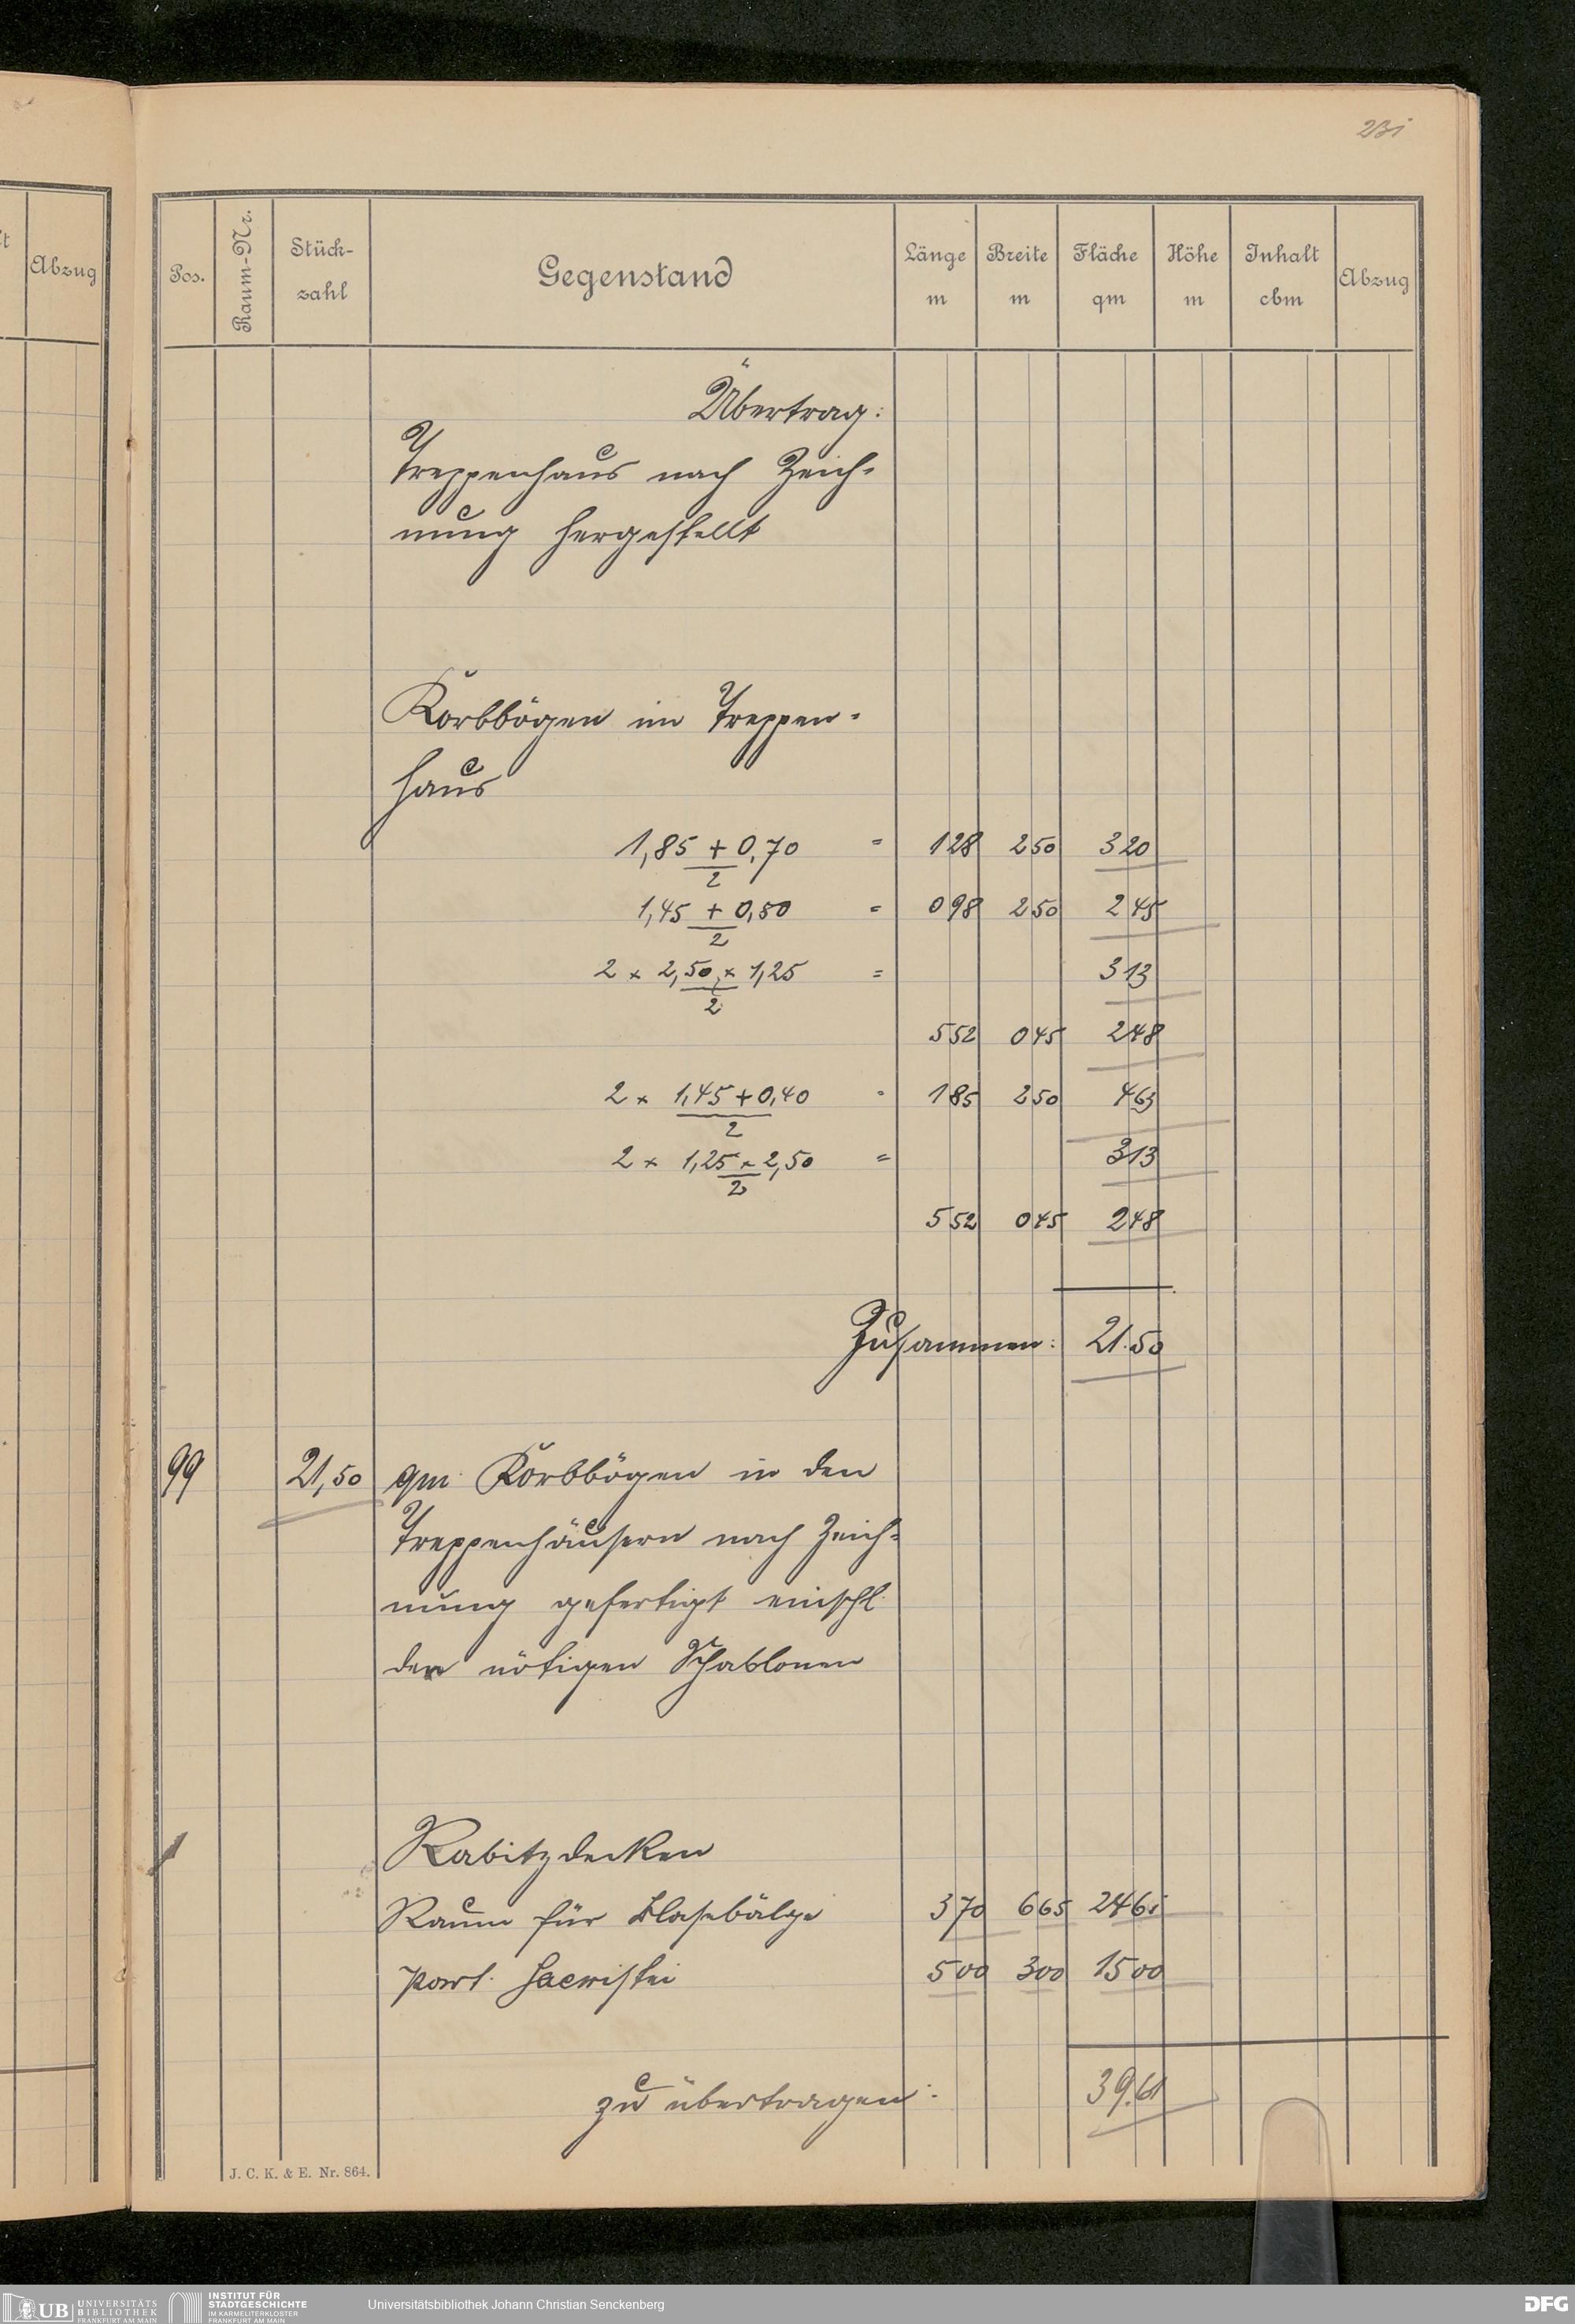 231
Abzug
Pos. Raum-Nr. Stück-zahl Gegenstand Länge m Breite m Fläche qm Höhe m Inhalt cbm Abzug
Übertrag:
Treppenhaus nach Zeich-
nung hergestellt
Korbbögen im Treppen-
haus
1,85 + 0,70 / 2 = 128 250 320
1,45 + 0,50 / 2 = 098 250 245
2 × 2,50 × 1,25 / 2 = 313
552 045 248
2 × 1,45 + 0,40 / 2 = 185 250 463
2 × 1,25 × 2,50 / 2 = 313
552 045 248
Zusammen: 21.50
99 21,50 qm Korbbögen in den
Treppenhäusern nach Zeich-
nung gefertigt einschl.
der nötigen Schablonen
Rabitzdecken
Raum für Blasebälge 370 665 2461
part. Sacristei 500 300 1500
zu übertragen: 39.61
J. C. K. & E. Nr. 864.
UB UNIVERSITÄTS BIBLIOTHEK FRANKFURT AM MAIN
INSTITUT FÜR STADTGESCHICHTE IM KARMELITERKLOSTER FRANKFURT AM MAIN
Universitätsbibliothek Johann Christian Senckenberg
DFG